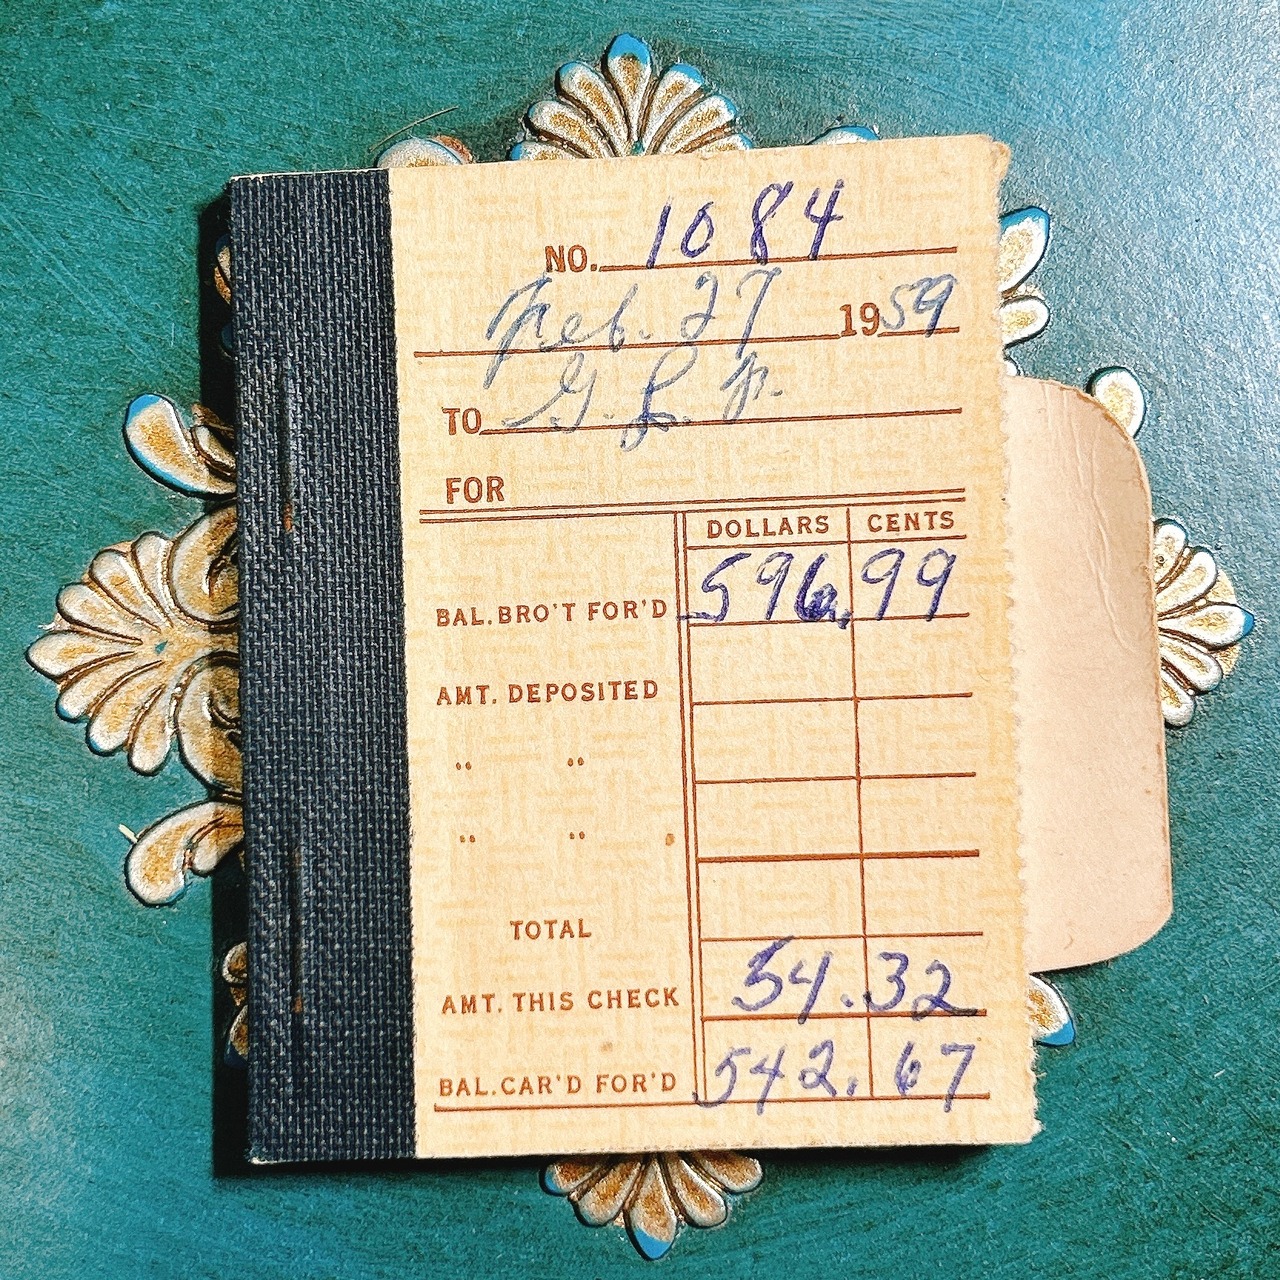 NO. 1084
Feb. 27 1959
TO G. L. P.
FOR
DOLLARS CENTS
BAL. BRO'T FOR'D 596.99
AMT. DEPOSITED
" "
" "
TOTAL
AMT. THIS CHECK 54.32
BAL. CAR'D FOR'D 542.67